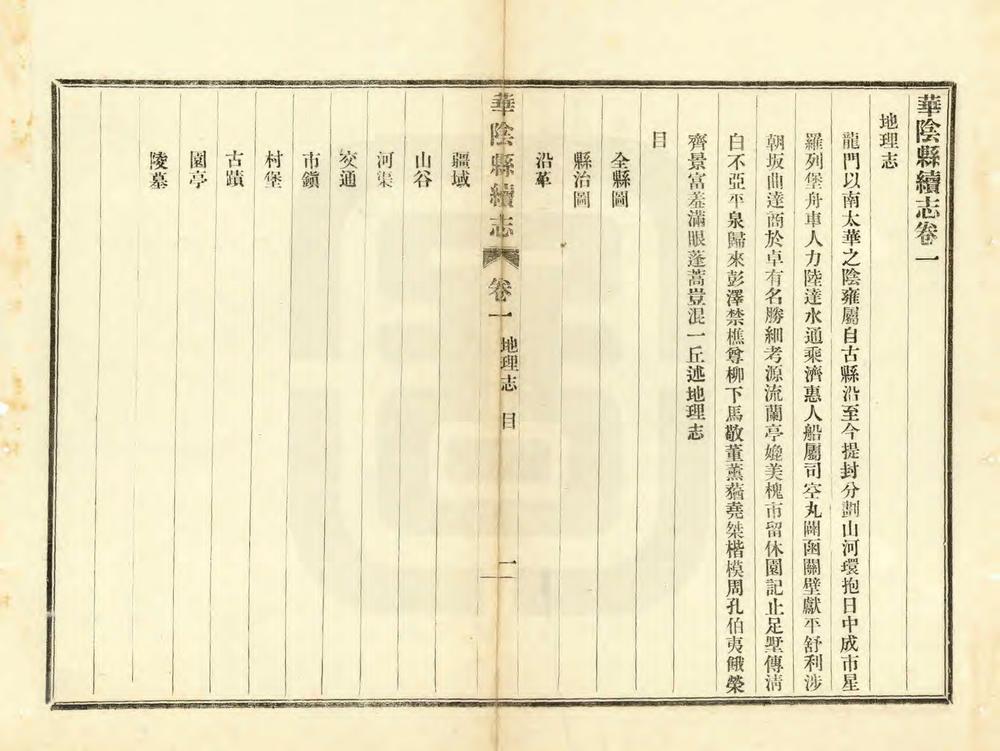 華陰縣續志卷一
地理志
龍門以南太華之陰雍屬自古縣沿至今提封分劃山河環抱日中成市星
羅列堡舟車人力陸達水通乘濟惠人船屬司空丸關函關壁獻平舒利涉
朝坂曲達商於卓有名勝細考源流蘭亭媲美槐市留休園記止足墅傳淸
白不亞平泉歸來彭澤禁樵尊柳下馬敬董薰蕕堯桀楷模周孔伯夷餓榮
齊景富羞滿眼蓬蒿豈混一丘述地理志
目
全縣圖
縣治圖
沿革
華陰縣續志 卷一 地理志 目 一
疆域
山谷
河渠
交通
市鎭
村堡
古蹟
園亭
陵墓